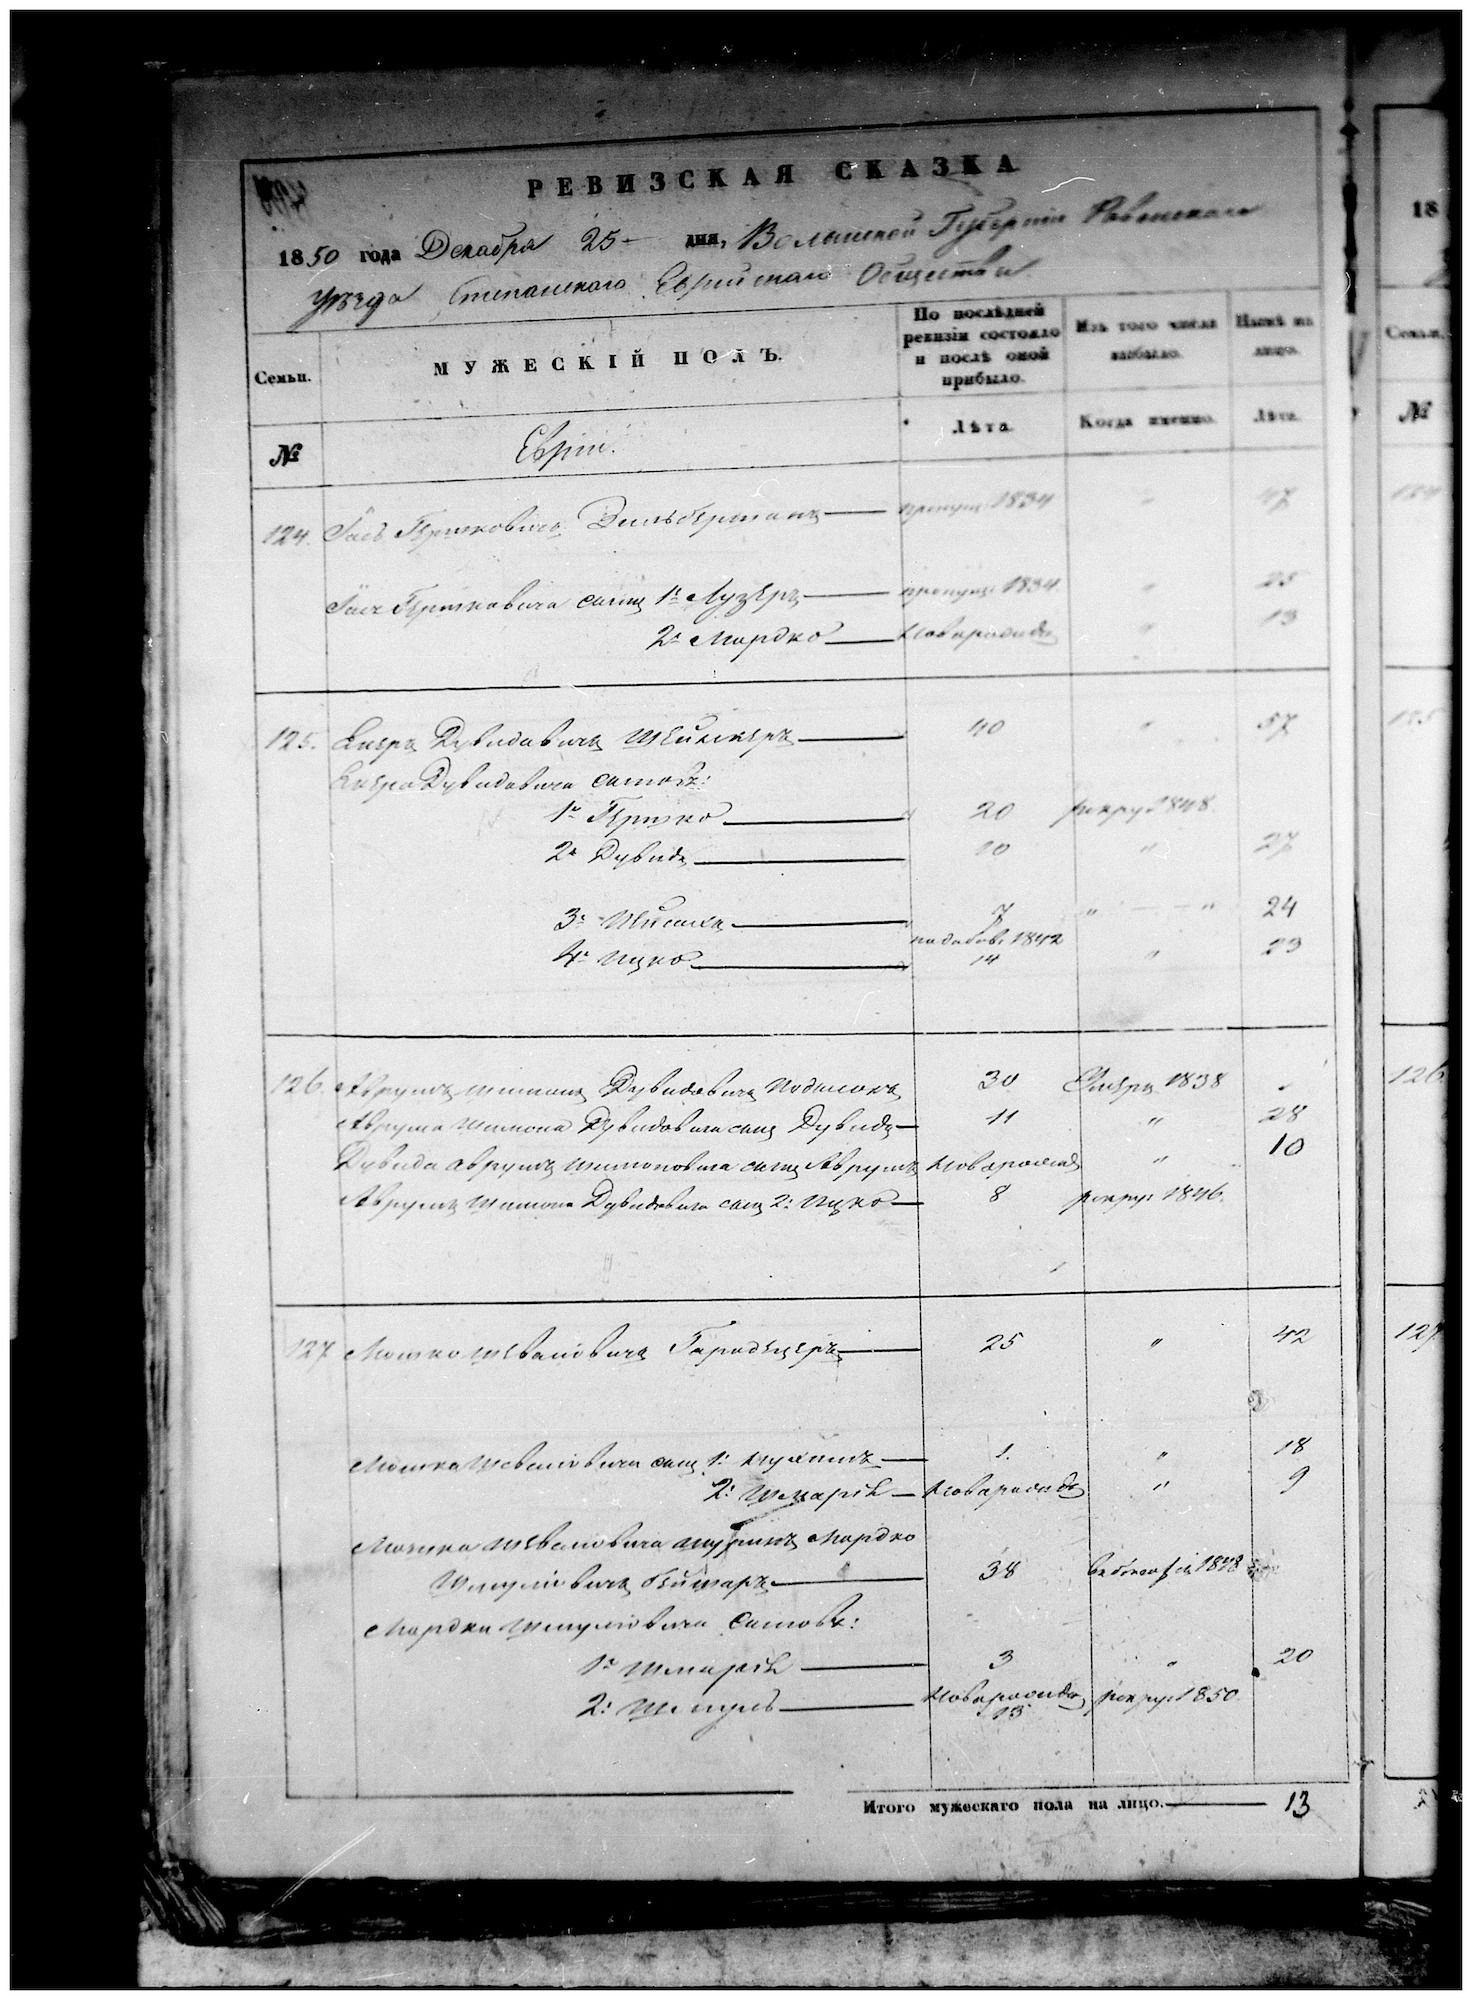 РЕВИЗСКАЯ СКАЗКА
1850 года Декабря 25 дня, Волынской Губерніи Ровенскаго
уѣзда Степанского Еврейскаго Общества
Семьи.
МУЖЕСКІЙ ПОЛЪ.
По послѣдней ревизіи состояло и послѣ оной прибыло.
Изъ того числа выбыло.
Нынѣ на лицо.
№
Евреи.
Лѣта.
Когда именно.
Лѣта.
124. Гершковичъ Зильберманъ пропущ. 1834 " 47
Гершковича сынъ 1й Лузеръ пропущ. 1834 " 25
2й Мордко новорожденъ " 13
125. Дувидовичъ 40 " 57
Дувидовича сыновья:
1й Гершко 20 рекру. 1848.
2й Дувидъ 10 " 27
3й 7 " " 24
4й Ицко 1842 14 " 23
126. Аврумъ Шимонъ Дувидовичъ 30 Умеръ 1838 "
Аврума Шимона Дувидовича сынъ Дувидъ 11 " 28
Дувида Аврумъ Шимоновича сынъ Аврумъ новорожд " 10
Аврумъ Шимона Дувидовича сынъ 2й Ицко 8 рекру: 1846.
127 Мошко Городецеръ 25 " 42
Мошка сынъ 1й 1. " 18
2й Шмарія новорожденъ " 9
Мошка Мордко
Шмуліовичъ 38 1848
Мордка Шмуліовича сыновья:
1й Шмарія 3 " 20
2й Шмуль новорожденъ 13 рекру: 1850.
Итого мужескаго пола на лицо. 13
18
Семьи.
№
124
125
126
127